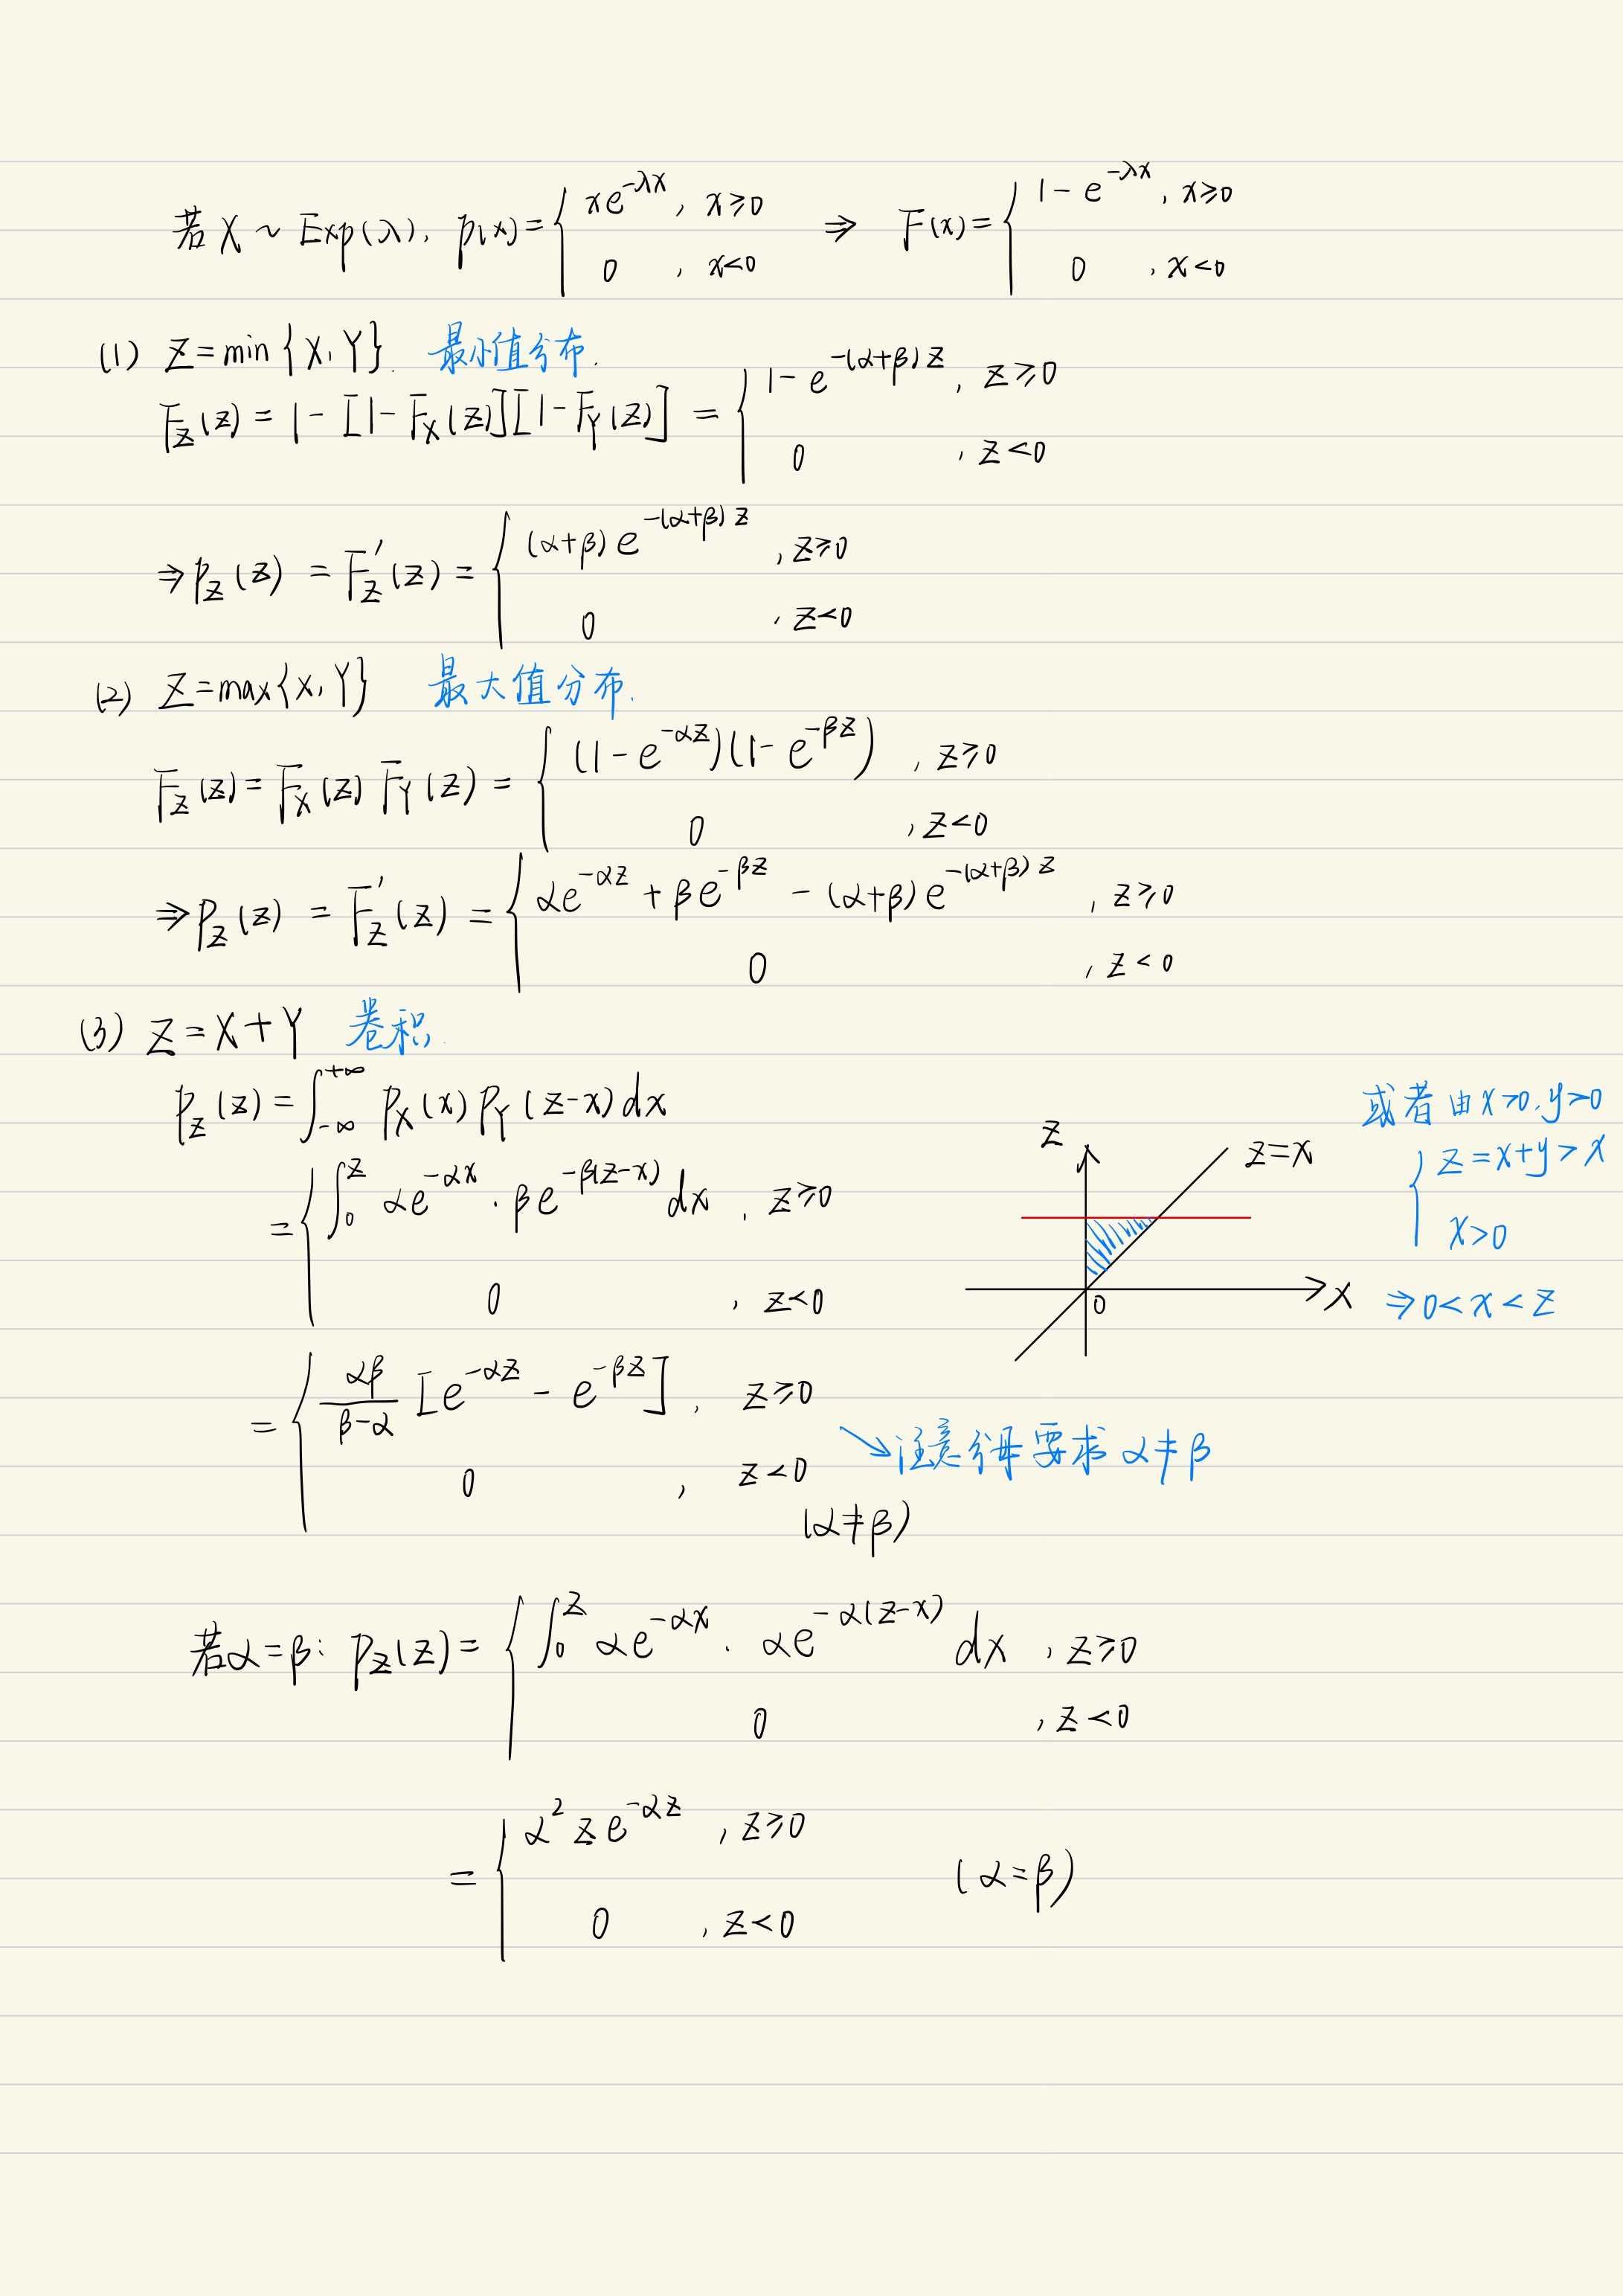 若 X ~ Exp(λ), p(x) = { xe^{-λx}, x≥0 ; 0, x<0 ⇒ F(x) = { 1 - e^{-λx}, x≥0 ; 0, x<0
(1) Z = min{X, Y}. 最小值分布.
F_Z(z) = 1 - [1 - F_X(z)][1 - F_Y(z)] = { 1 - e^{-(α+β)z}, z≥0 ; 0, z<0
⇒ p_Z(z) = F_Z'(z) = { (α+β)e^{-(α+β)z}, z≥0 ; 0, z<0
(2) Z = max{X, Y} 最大值分布.
F_Z(z) = F_X(z) F_Y(z) = { (1 - e^{-αz})(1 - e^{-βz}), z≥0 ; 0, z<0
⇒ p_Z(z) = F_Z'(z) = { αe^{-αz} + βe^{-βz} - (α+β)e^{-(α+β)z}, z≥0 ; 0, z<0
(3) Z = X + Y 卷积.
p_Z(z) = ∫_{-∞}^{+∞} p_X(x) p_Y(z-x) dx
= { ∫_0^z αe^{-αx} · βe^{-β(z-x)} dx, z≥0 ; 0, z<0
z
z=x
0
x
或者由 x>0, y>0
{ z = x+y > x
x>0
⇒ 0<x<z
= { αβ/(β-α) [e^{-αz} - e^{-βz}], z≥0 ; 0, z<0
(α≠β)
↘注意分母要求 α≠β
若α=β: p_Z(z) = { ∫_0^z αe^{-αx} · αe^{-α(z-x)} dx, z≥0 ; 0, z<0
= { α^2 z e^{-αz}, z≥0 ; 0, z<0 (α=β)